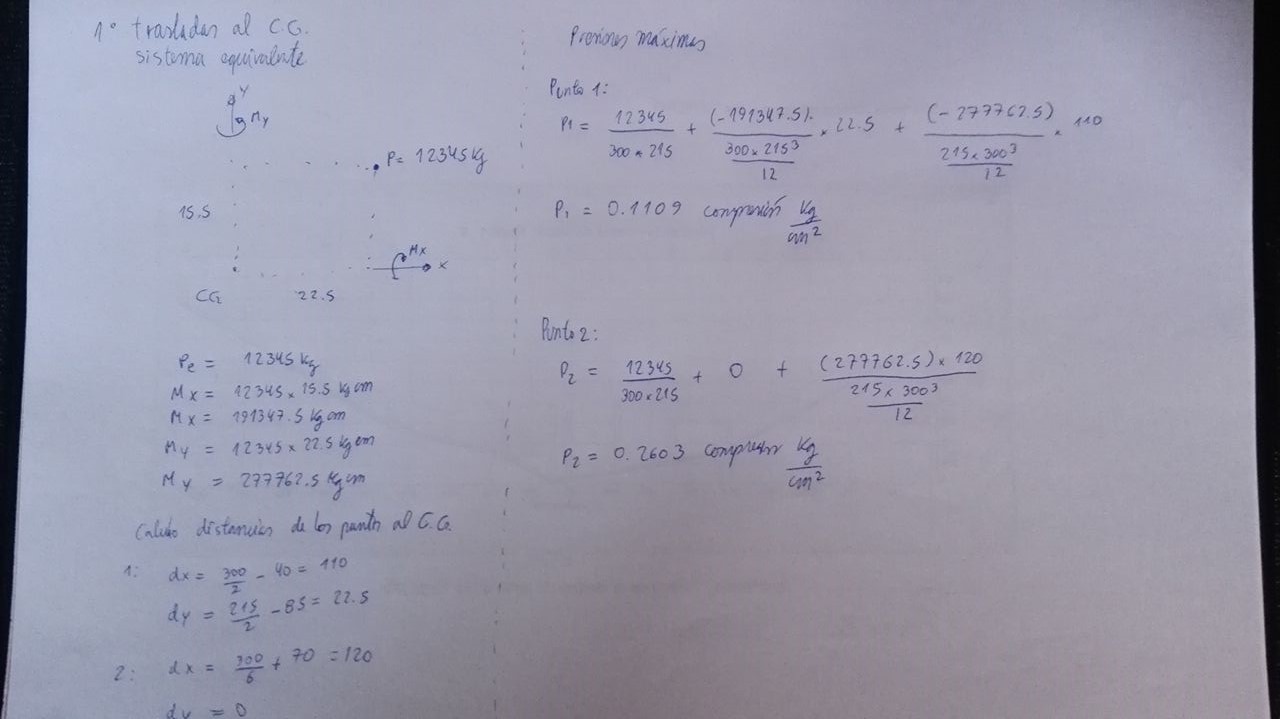 1º trasladas al C.G.
sistema equivalente
Y
My
P= 12345 Kg
15.5
Mx
x
CG
22.5
Pe = 12345 kg
Mx = 12345 x 15.5 kg cm
Mx = 191347.5 kg cm
My = 12345 x 22.5 kg cm
My = 277762.5 kg cm
Calculo distancias de los puntos al C.G.
1: dx = 300/2 - 40 = 110
dy = 215/2 - 85 = 22.5
2: dx = 300/6 + 70 = 120
dy = 0
Presiones máximas
Punto 1:
P1 = 12345/(300 x 215) + (-191347.5)/(300 x 215³/12) x 22.5 + (-277762.5)/(215 x 300³/12) x 110
P1 = 0.1109 compresión Kg/cm²
Punto 2:
P2 = 12345/(300 x 215) + 0 + (277762.5) x 120/(215 x 300³/12)
P2 = 0.2603 compresión Kg/cm²